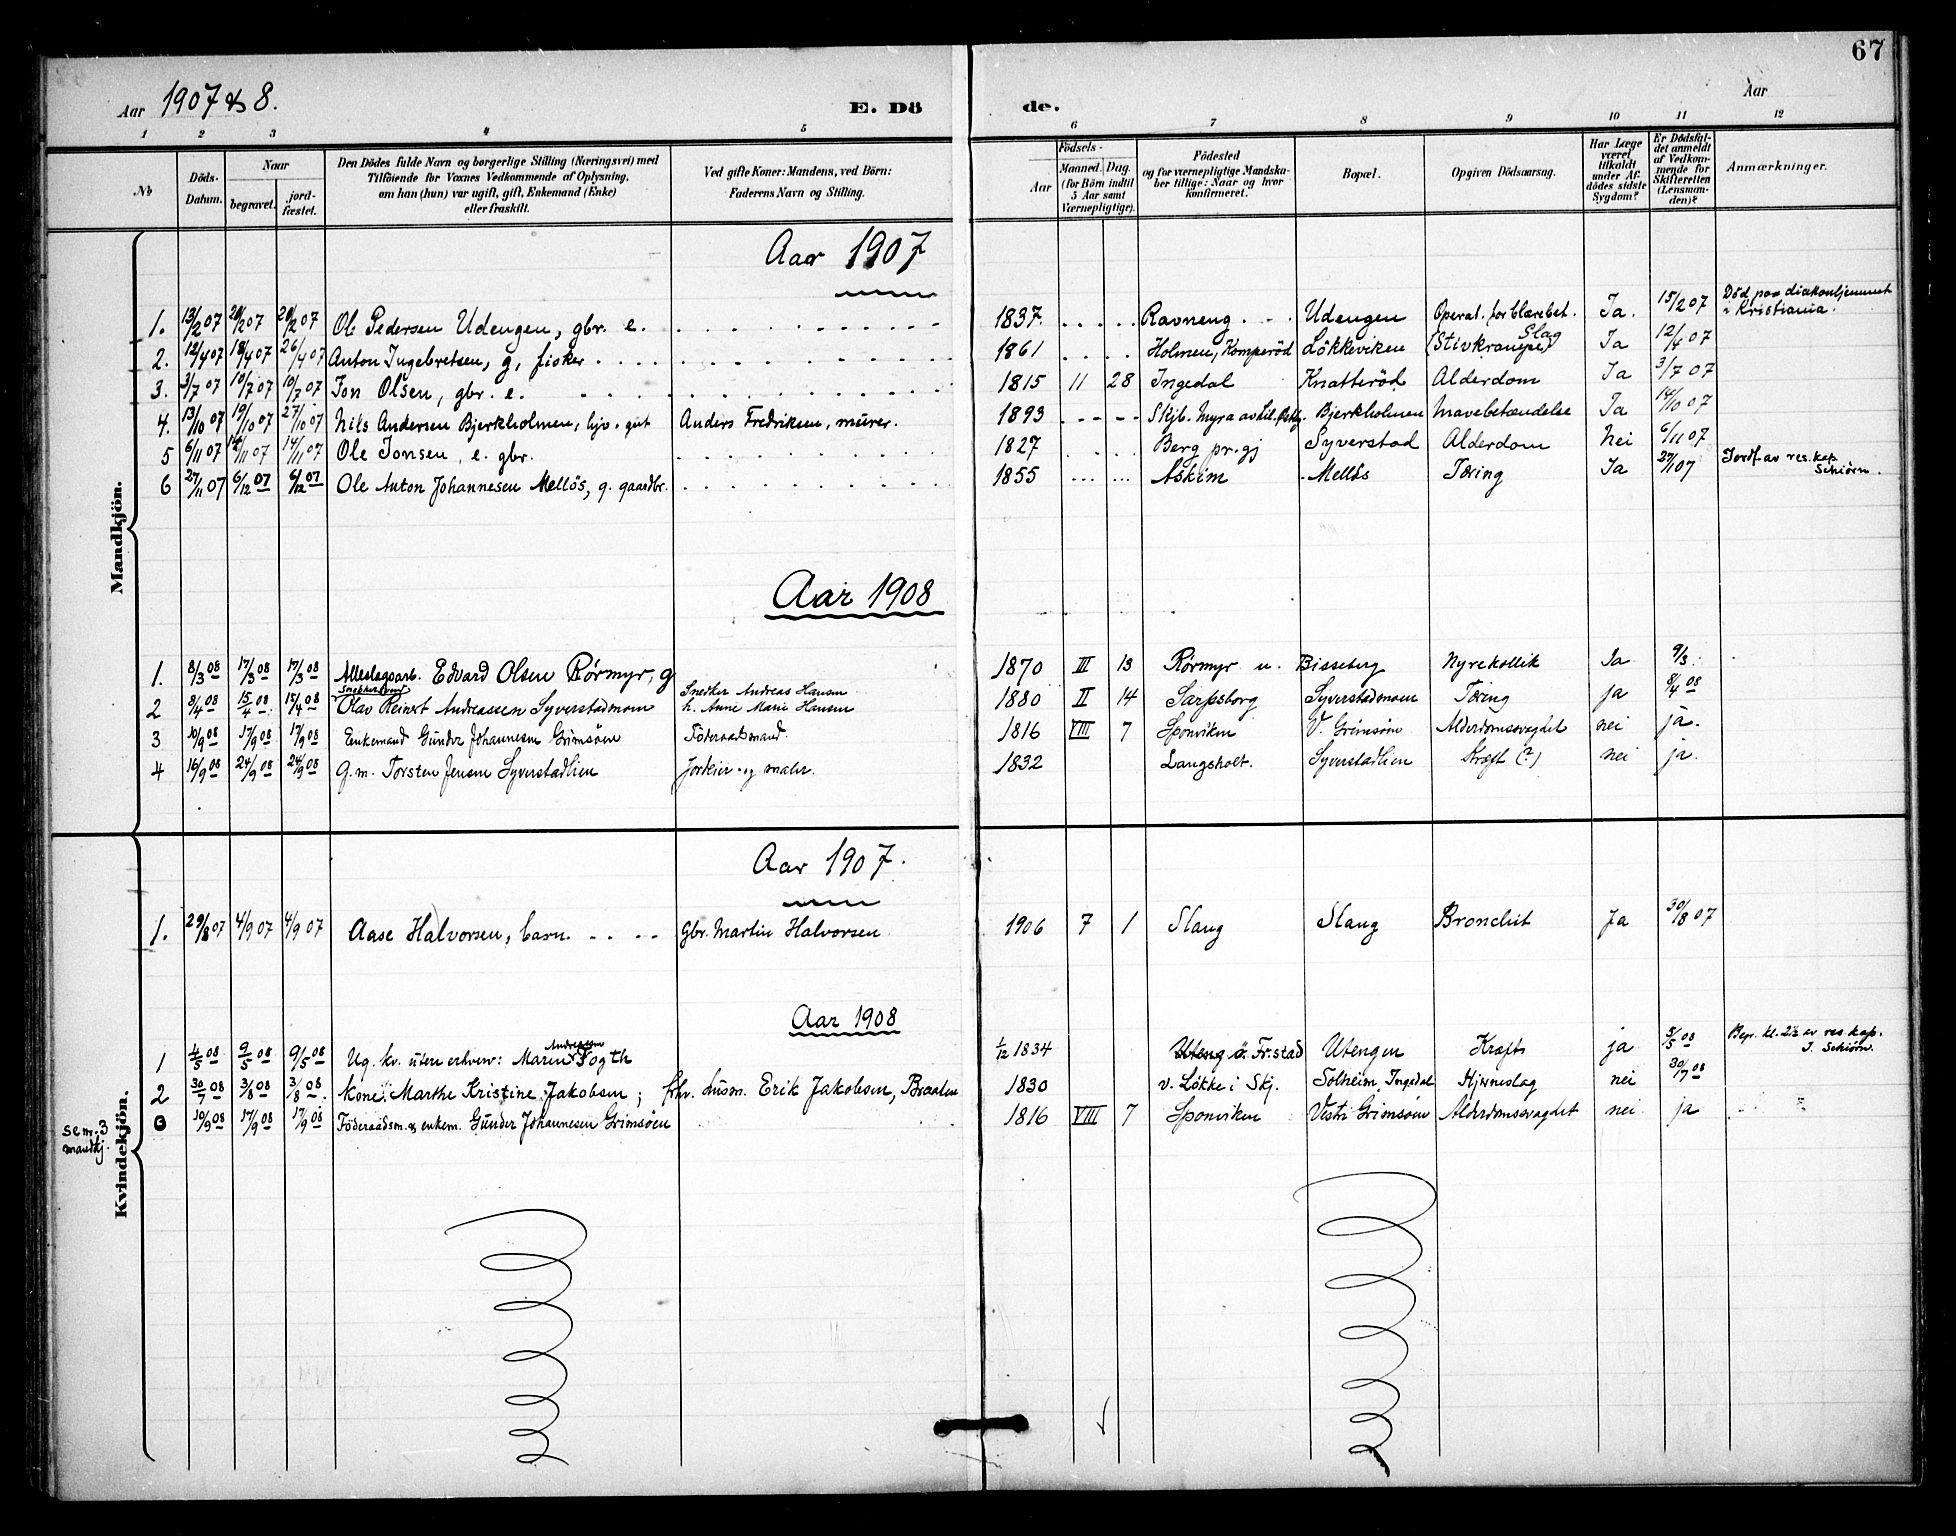 67
Aar 1907 & 8.
E. Dö
de.
Aar
1 2 3 4 5 6 7 8 9 10 11 12
No
Döds-
Datum.
Naar
begravet.
jord-
fæstet.
Den Dödes fulde Navn og borgerlige Stilling (Næringsvei) med
Tilföiende for Voxnes Vedkommende af Oplysning,
om han (hun) var ugift, gift, Enkemand (Enke)
eller fraskilt.
Ved gifte Koner: Mandens, ved Börn:
Faderens Navn og Stilling.
Födsels-
Aar
Maaned. Dag.
(for Börn indtil
5 Aar samt
Værnepligtige).
Födested
og for værnepligtige Mandska-
ber tillige: Naar og hvor
konfirmeret.
Bopæl.
Opgiven Dödsaarsag.
Har Læge
været
tilkaldt
under Af-
dödes sidste
Sygdom?
Er Dödsfal-
det anmeldt
af Vedkom-
mende for
Skifteretten
(Lensman-
den)?
Anmærkninger.
Mandkjön.
Aar 1907
1. 13/2 07 20/2 07 20/2 07 Ole Pedersen Udengen, gbr. e. 1837. Ravneng Udengen Operat. for blærebet. Ja. 15/2 07 Död paa diakonhjemmet
i Kristiania.
2. 12/4 07 18/4 07 26/4 07 Anton Ingebretsen, g, fisker 1861 Holmen, Komperöd Lökkeviken (Stivkrampe) Slag Ja 12/4 07
3. 3/7 07 10/7 07 10/7 07 Jon Olsen, gbr. e. 1815 11 28 Ingedal Knatteröd Alderdom Ja 3/7 07
4. 13/10 07 19/10 07 27/10 07 Nils Andersen Bjerkholmen, hjv. gut Anders Fredriksen, murer. 1893 Skjb. Myra av Bjerkholmen Mavebetændelse Ja 14/10 07
5 6/11 07 14/11 07 14/11 07 Ole Jonsen, e. gbr. 1827 Berg pr.gj Syverstad Alderdom Nei 6/11 07
6 27/11 07 6/12 07 6/12 07 Ole Anton Johannesen Mellös, g. gaardbr. 1855 Askim Mellös Tæring Ja 27/11 07 Jordf. av res. kap
Schiörn.
Aar 1908
1. 8/3 08 17/3 08 17/3 08 Alleslagsarb. Edvard Olsen Rörmyr, g 1870 III 13 Rörmyr u. Bisseberg Nyrekollik Ja 9/3.
2 8/4 08 15/4 08 15/4 08 Olav Reinert Andreassen Syverstadmoen Snekker Andreas Hansen
h. Anne Marie Hansen 1880 II 14 Sarpsborg Syverstadmoen Tæring ja 8/4 08
3 10/9 08 17/9 08 17/9 08 Enkemand Gunder Johannesen Grimsöen Föderaadsmand. 1816 VIII 7 Sponviken V. Grimsöen Alderdomssvaghet nei ja.
4 16/9 08 24/9 08 24/9 08 G. m. Torsten Jensen Syverstadlien Jordeier og maler. 1832 Langsholt. Syverstadlien Kræft (?) nei ja.
Kvindekjön.
Aar 1907.
1. 29/8 07 4/9 07 4/9 07 Aase Halvorsen, barn Gbr. Martin Halvorsen 1906 7 1 Slaug Slaug Bronchit Ja 30/8 07
Aar 1908
1 4/5 08 9/5 08 9/5 08 Ug. kv. uten erhverv: Maren Andreassen Fogth 1/12 1834 Uteng ö. Fr.stad Utengen Kræft ja 5/5 08 Begr. kl. 2½ av res. kap.
J. Schiörn.
2 30/7 08 3/8 08 3/8 08 Kone Marthe Kristine Jakobsen; fhv. husm. Erik Jakobsen, Braaten 1830 v. Lökke i Skj. Solheim, Ingedal Hjerneslag nei 30/7 08
se m. 3
mandkj.
3 10/9 08 17/9 08 17/9 08 Föderaadsm. & enkem. Gunder Johannesen Grimsöen 1816 VIII 7 Sponviken Vestr Grimsöen Alderdomssvaghet nei ja